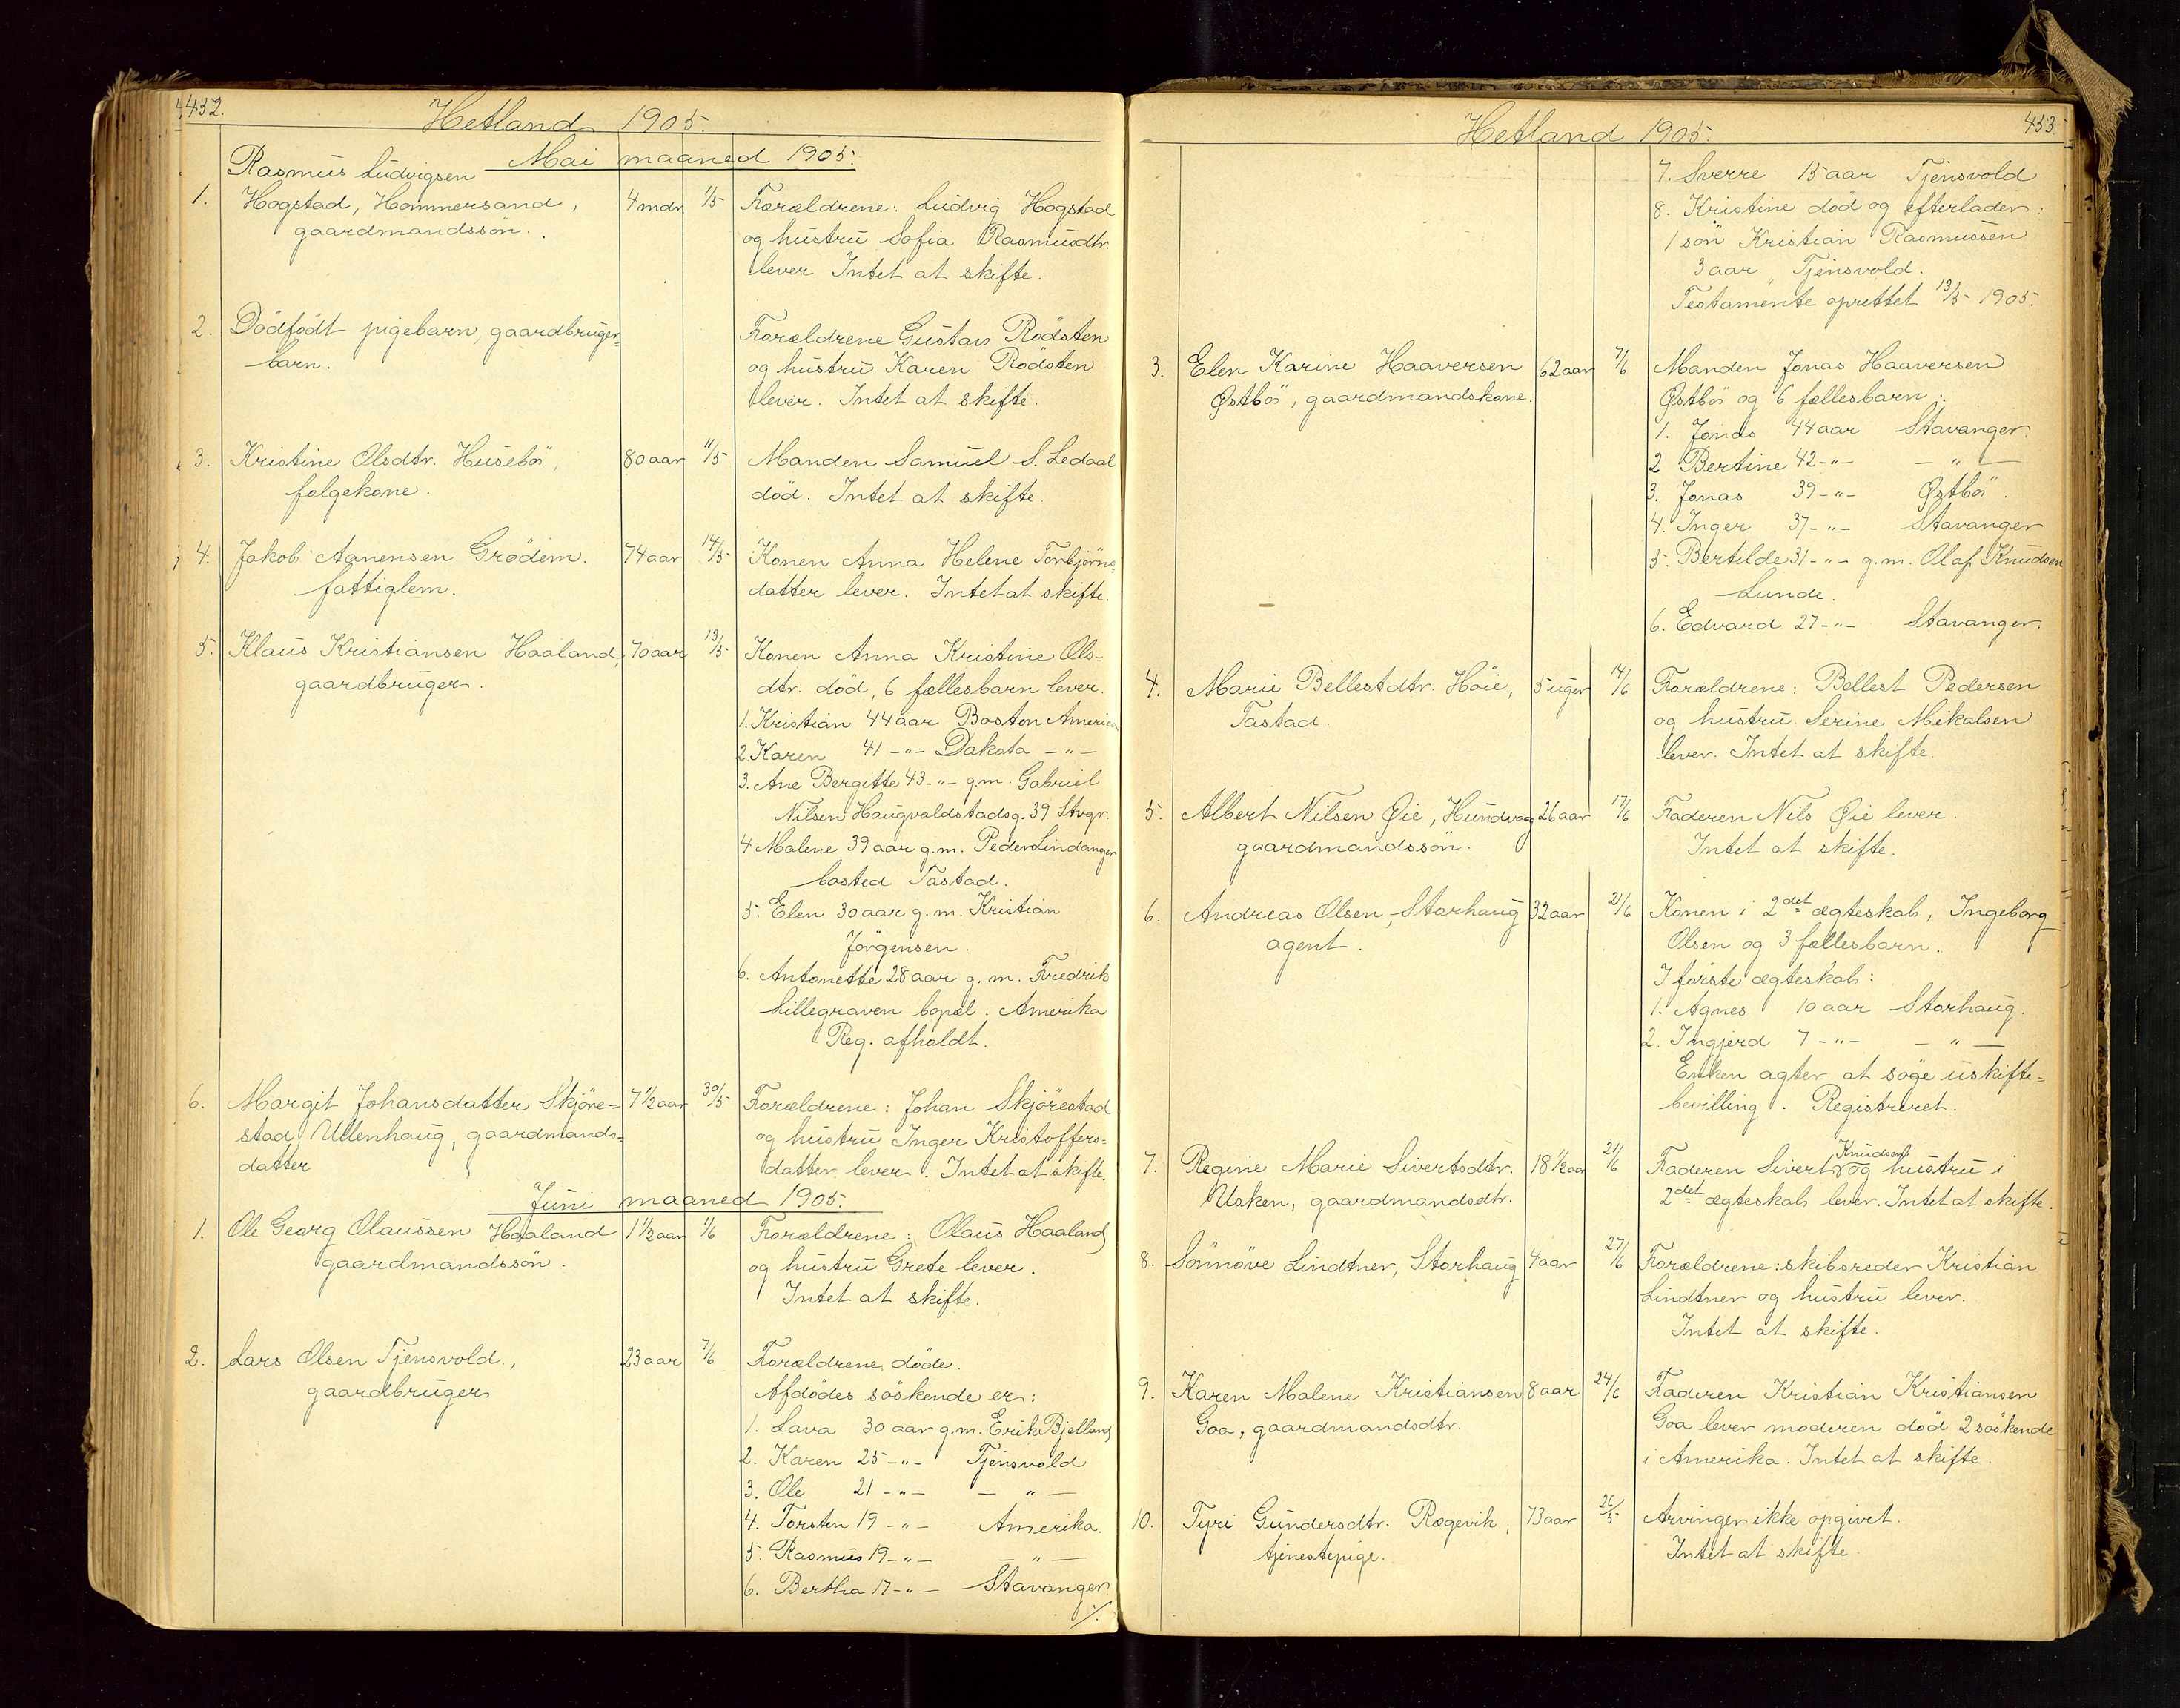 452.
Hetland 1905.
Mai maaned 1905.
Rasmus Ludvigsen
1. Hogstad, Hommersand, 4 mdr. 1/5 Forældrene: Ludvig Hogstad
gaardmandssön. og hustru Sofia Rasmusdtr.
lever Intet at skifte.
2. Dödfödt pigebarn, gaardbruger= Forældrene Gustav Rödsten
barn. og hustru Karen Rödsten
lever. Intet at skifte.
3. Kristine Olsdtr. Husebö, 80 aar 11/5 Manden Samuel S. Ledaal
folgekone. död. Intet at skifte.
4. Jakob Aanensen Grödem. 74 aar 14/5 Konen Anna Helene Torbjörns=
fattiglem. datter lever. Intet at skifte.
5. Klaus Kristiansen Haaland, 70 aar 13/5 Konen Anna Kristine Ols=
gaardbruger. dtr. död, 6 fællesbarn lever.
1. Kristian 44 aar Boston America
2. Karen 41 -"- Dakota -"-
3. Ane Bergitte 43 -"- gm. Gabriel
Nilsen Haugvaldstadsg. 39 Stvgr.
4 Malene 39 aar g.m. Peder Lindanger
bosted Tastad.
5. Elen 30 aar g.m. Kristian
Jörgensen.
6. Antonette 28 aar g.m. Fredrik
Lillegraven bopæl. Amerika
Reg. afholdt.
6. Margit Johansdatter Skjöre= 7 1/2 aar 30/5 Forældrene: Johan Skjörestad
stad, Ullenhaug, gaardmands= og hustru Inger Kristoffers=
datter datter lever. Intet at skifte.
Juni maaned 1905.
1. Ole Georg Olaussen Haaland 1 1/2 aar 1/6 Forældrene: Olaus Haaland
gaardmandssön. og hustru Grete lever.
Intet at skifte.
2. Lars Olsen Tjensvold, 23 aar 7/6 Forældrene döde.
gaardbruger Afdödes söskende er:
1. Lava 30 aar g.m. Erik Bjelland
2. Karen 25 -"- Tjensvold
3. Ole 21 -"- - " -
4. Torsten 19 -"- Amerika.
5. Rasmus 19 -"- - " -
6. Bertha 17 -"- Stavanger.
./.
453.
Hetland 1905.
7. Sverre 15 aar Tjensvold
8. Kristine död og efterlader:
1 sön Kristian Rasmussen
3 aar, Tjensvold.
Testamente oprettet 13/5 1905.
3. Elen Karine Haaversen 62 aar 7/6 Manden Jonas Haaversen
Østbö, gaardmandskone. Østbö og 6 fællesbarn:
1. Jonas 44 aar Stavanger.
2 Bertine 42 -"- - " -
3. Jonas 39 -"- Østbö.
4. Inger 37 -"- Stavanger
5. Bertilde 31 -"- g.m. Olaf Knudsen
Lunde.
6. Edvard 27 -"- Stavanger.
4. Marie Bellestdtr. Höie, 5 uger 14/6 Forældrene: Bellest Pedersen
Tastad. og hustru Serine Mikalsen
lever. Intet at skifte.
5. Albert Nilsen Øie, Hundvaag 26 aar 17/6 Faderen Nils Øie lever.
gaardmandssön. Intet at skifte.
6. Andreas Olsen, Storhaug 32 aar 21/6 Konen i 2det ægteskab, Ingeborg
agent. Olsen og 3 fællesbarn.
I förste ægteskab:
1. Agnes 10 aar Storhaug.
2. Ingjerd 7 -"- - " -
Enken agter at söge uskifte=
bevilling. Registreret.
7. Regine Marie Sivertsdtr. 18 1/2 aar 21/6 Faderen Sivert Knudsen og hustru i
Usken, gaardmandsdtr. 2det ægteskab lever. Intet at skifte.
8. Sönnöve Lindtner, Storhaug 4 aar 27/6 Forældrene: skibsreder Kristian
Lindtner og hustru lever.
Intet at skifte.
9. Karen Malene Kristiansen 8 aar 24/6 Faderen Kristian Kristiansen
Goa, gaardmandsdtr. Goa lever moderen död 2 söskende
i Amerika. Intet at skifte.
10. Tyri Gundersdtr. Rægevik, 73 aar 26/5 Arvinger ikke opgivet.
tjenestepige. Intet at skifte.